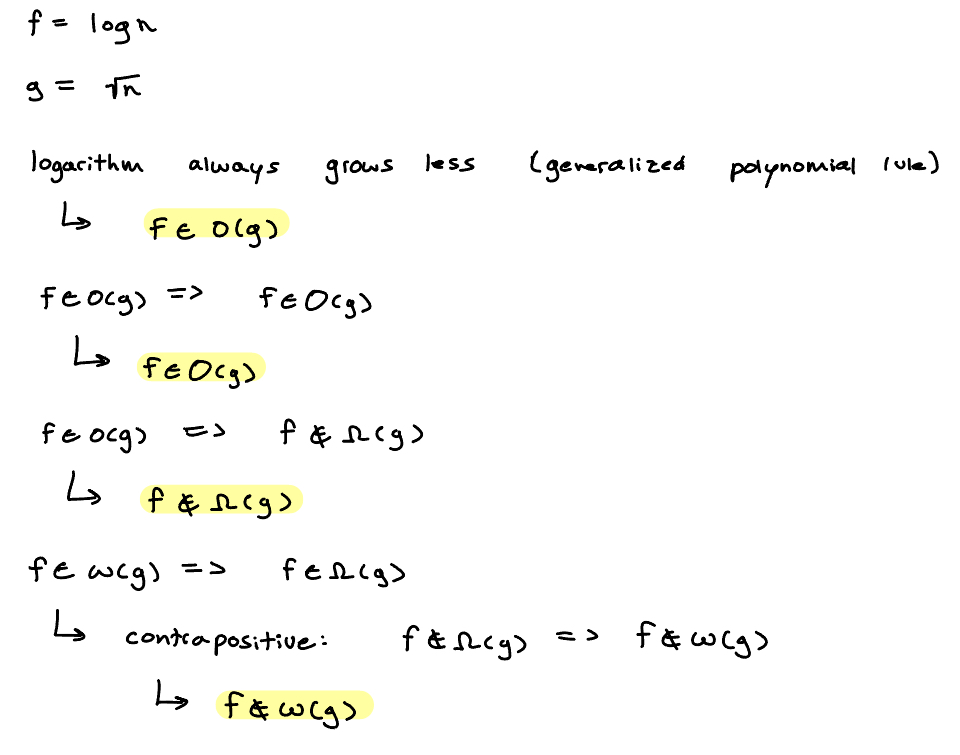 f = log n
g = √n
logarithm always grows less (generalized polynomial rule)
↳ f ∈ o(g)
f ∈ o(g) => f ∈ O(g)
↳ f ∈ O(g)
f ∈ o(g) => f ∉ Ω(g)
↳ f ∉ Ω(g)
f ∈ ω(g) => f ∈ Ω(g)
↳ contrapositive: f ∉ Ω(g) => f ∉ ω(g)
↳ f ∉ ω(g)